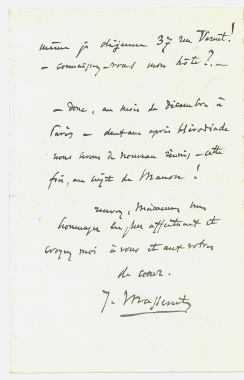 même je déjeune 37 rue Vernet!
– connaissez-vous mon hôte?–
– Donc, au mois de Décembre à
Paris – deux ans après Hérodiade
nous serons de nouveau réunis – cette
fois, au sujet de Manon!
recevez, Madame, mes
hommages les plus affectueux et
croyez moi à vous et aux vôtres
de cœur.
J. Massenet